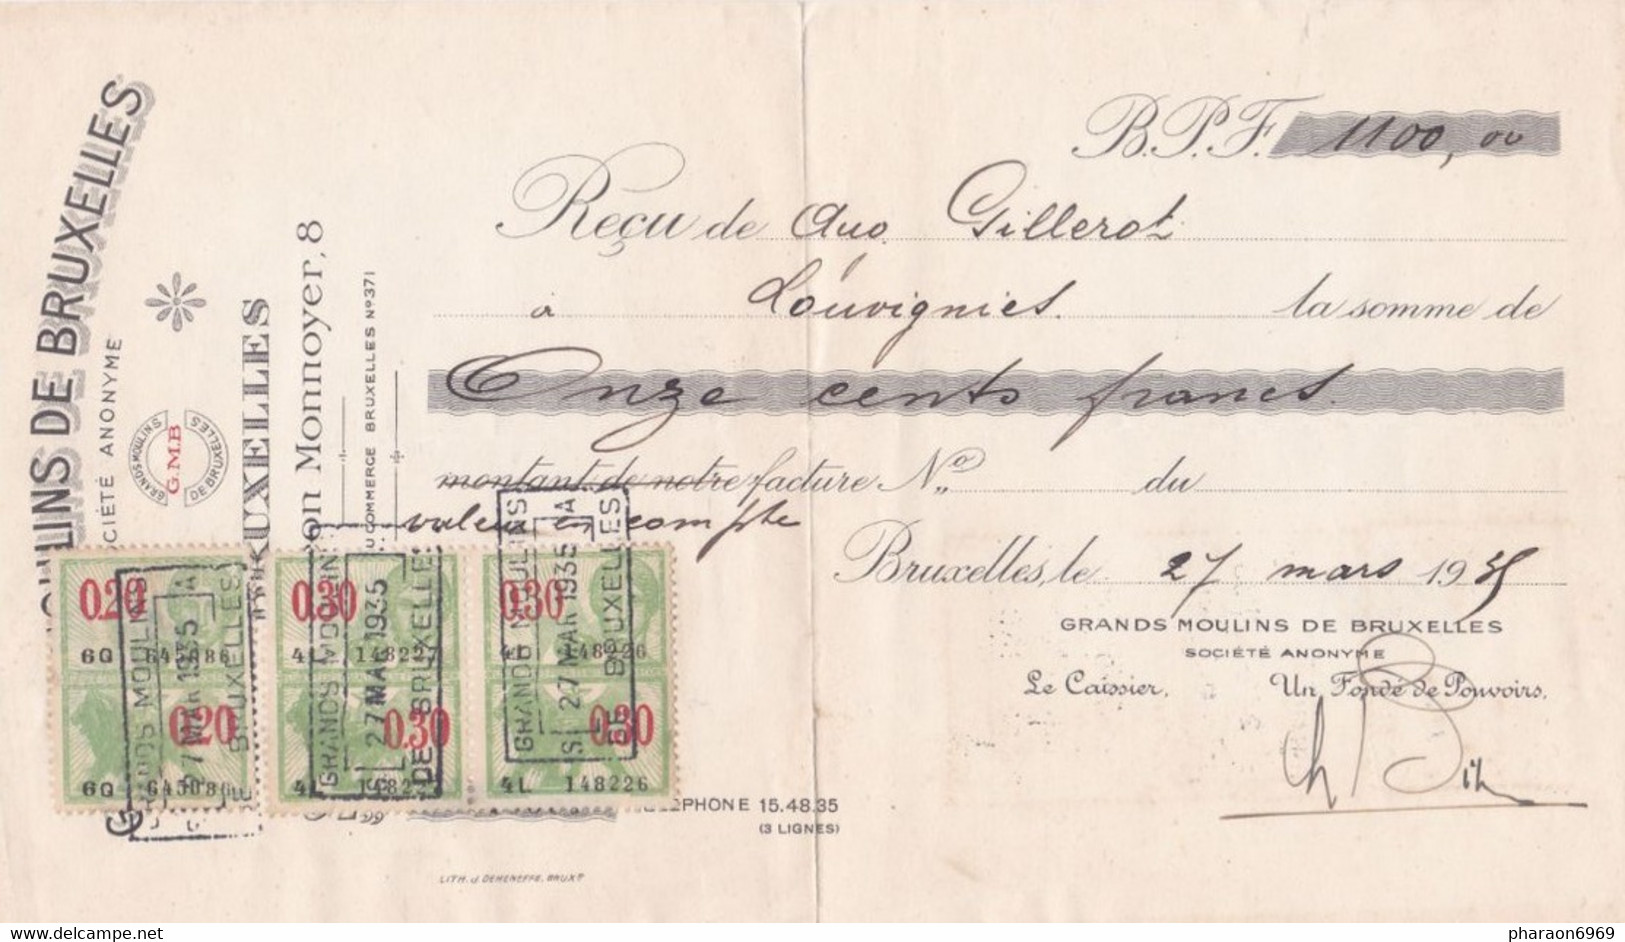 B.P.F. 1100,00
Reçu de Auo. Gillerot
à Louvignies. la somme de
Onze cents francs.
montant de notre facture No du
valeur en compte
Bruxelles, le 27 mars 1935
GRANDS MOULINS DE BRUXELLES
SOCIÉTÉ ANONYME
Le Caissier, Un Fondé de Pouvoirs,
MOULINS DE BRUXELLES
SOCIÉTÉ ANONYME
GRANDS MOULINS
G.M.B
DE BRUXELLES
BRUXELLES
on Monnoyer, 8
DU COMMERCE BRUXELLES No 371
0.20 0.30 0.30
6Q 4L 148227 4L 148226
0.20 0.30 0.30
6Q 4L 4L 148226
GRANDS MOULINS
27 MAR 1935
DE BRUXELLES
GRANDS MOULINS
27 MAR 1935
DE BRUXELLES
GRANDS MOULINS
27 MAR 1935
DE BRUXELLES
TÉLÉPHONE 15.48.35
(3 LIGNES)
LITH. J. DEHENEFFE, BRUX.
delcampe.net
pharaon6969